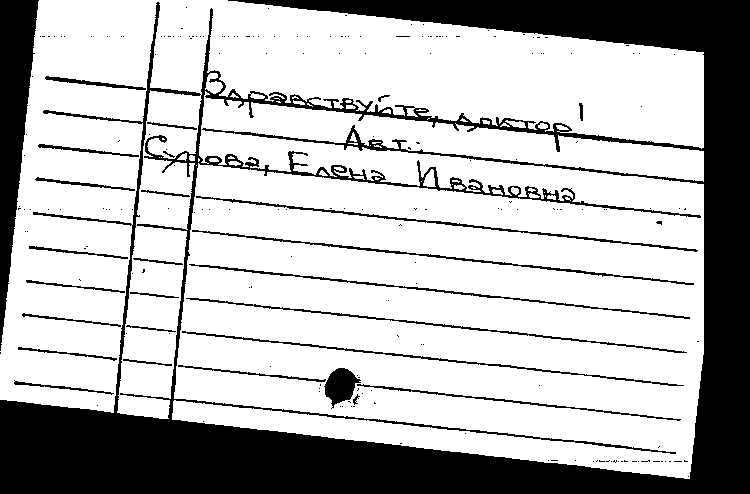 Здравствуйте, доктор!
Авт.:
Сурова, Елена Ивановна.